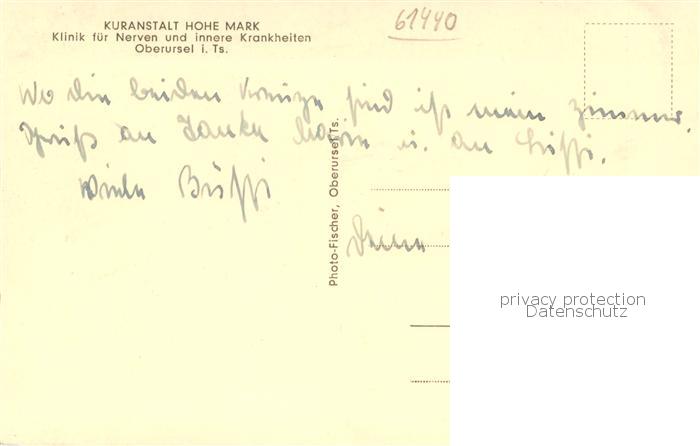 KURANSTALT HOHE MARK
Klinik für Nerven und innere Krankheiten
Oberursel i. Ts.
61440
Wo die beiden Kreuze sind ist mein Zimmer.
Gruß an Tante u. an
Viele Bussi
Deine
Photo-Fischer, Oberursel Ts.
privacy protection
Datenschutz